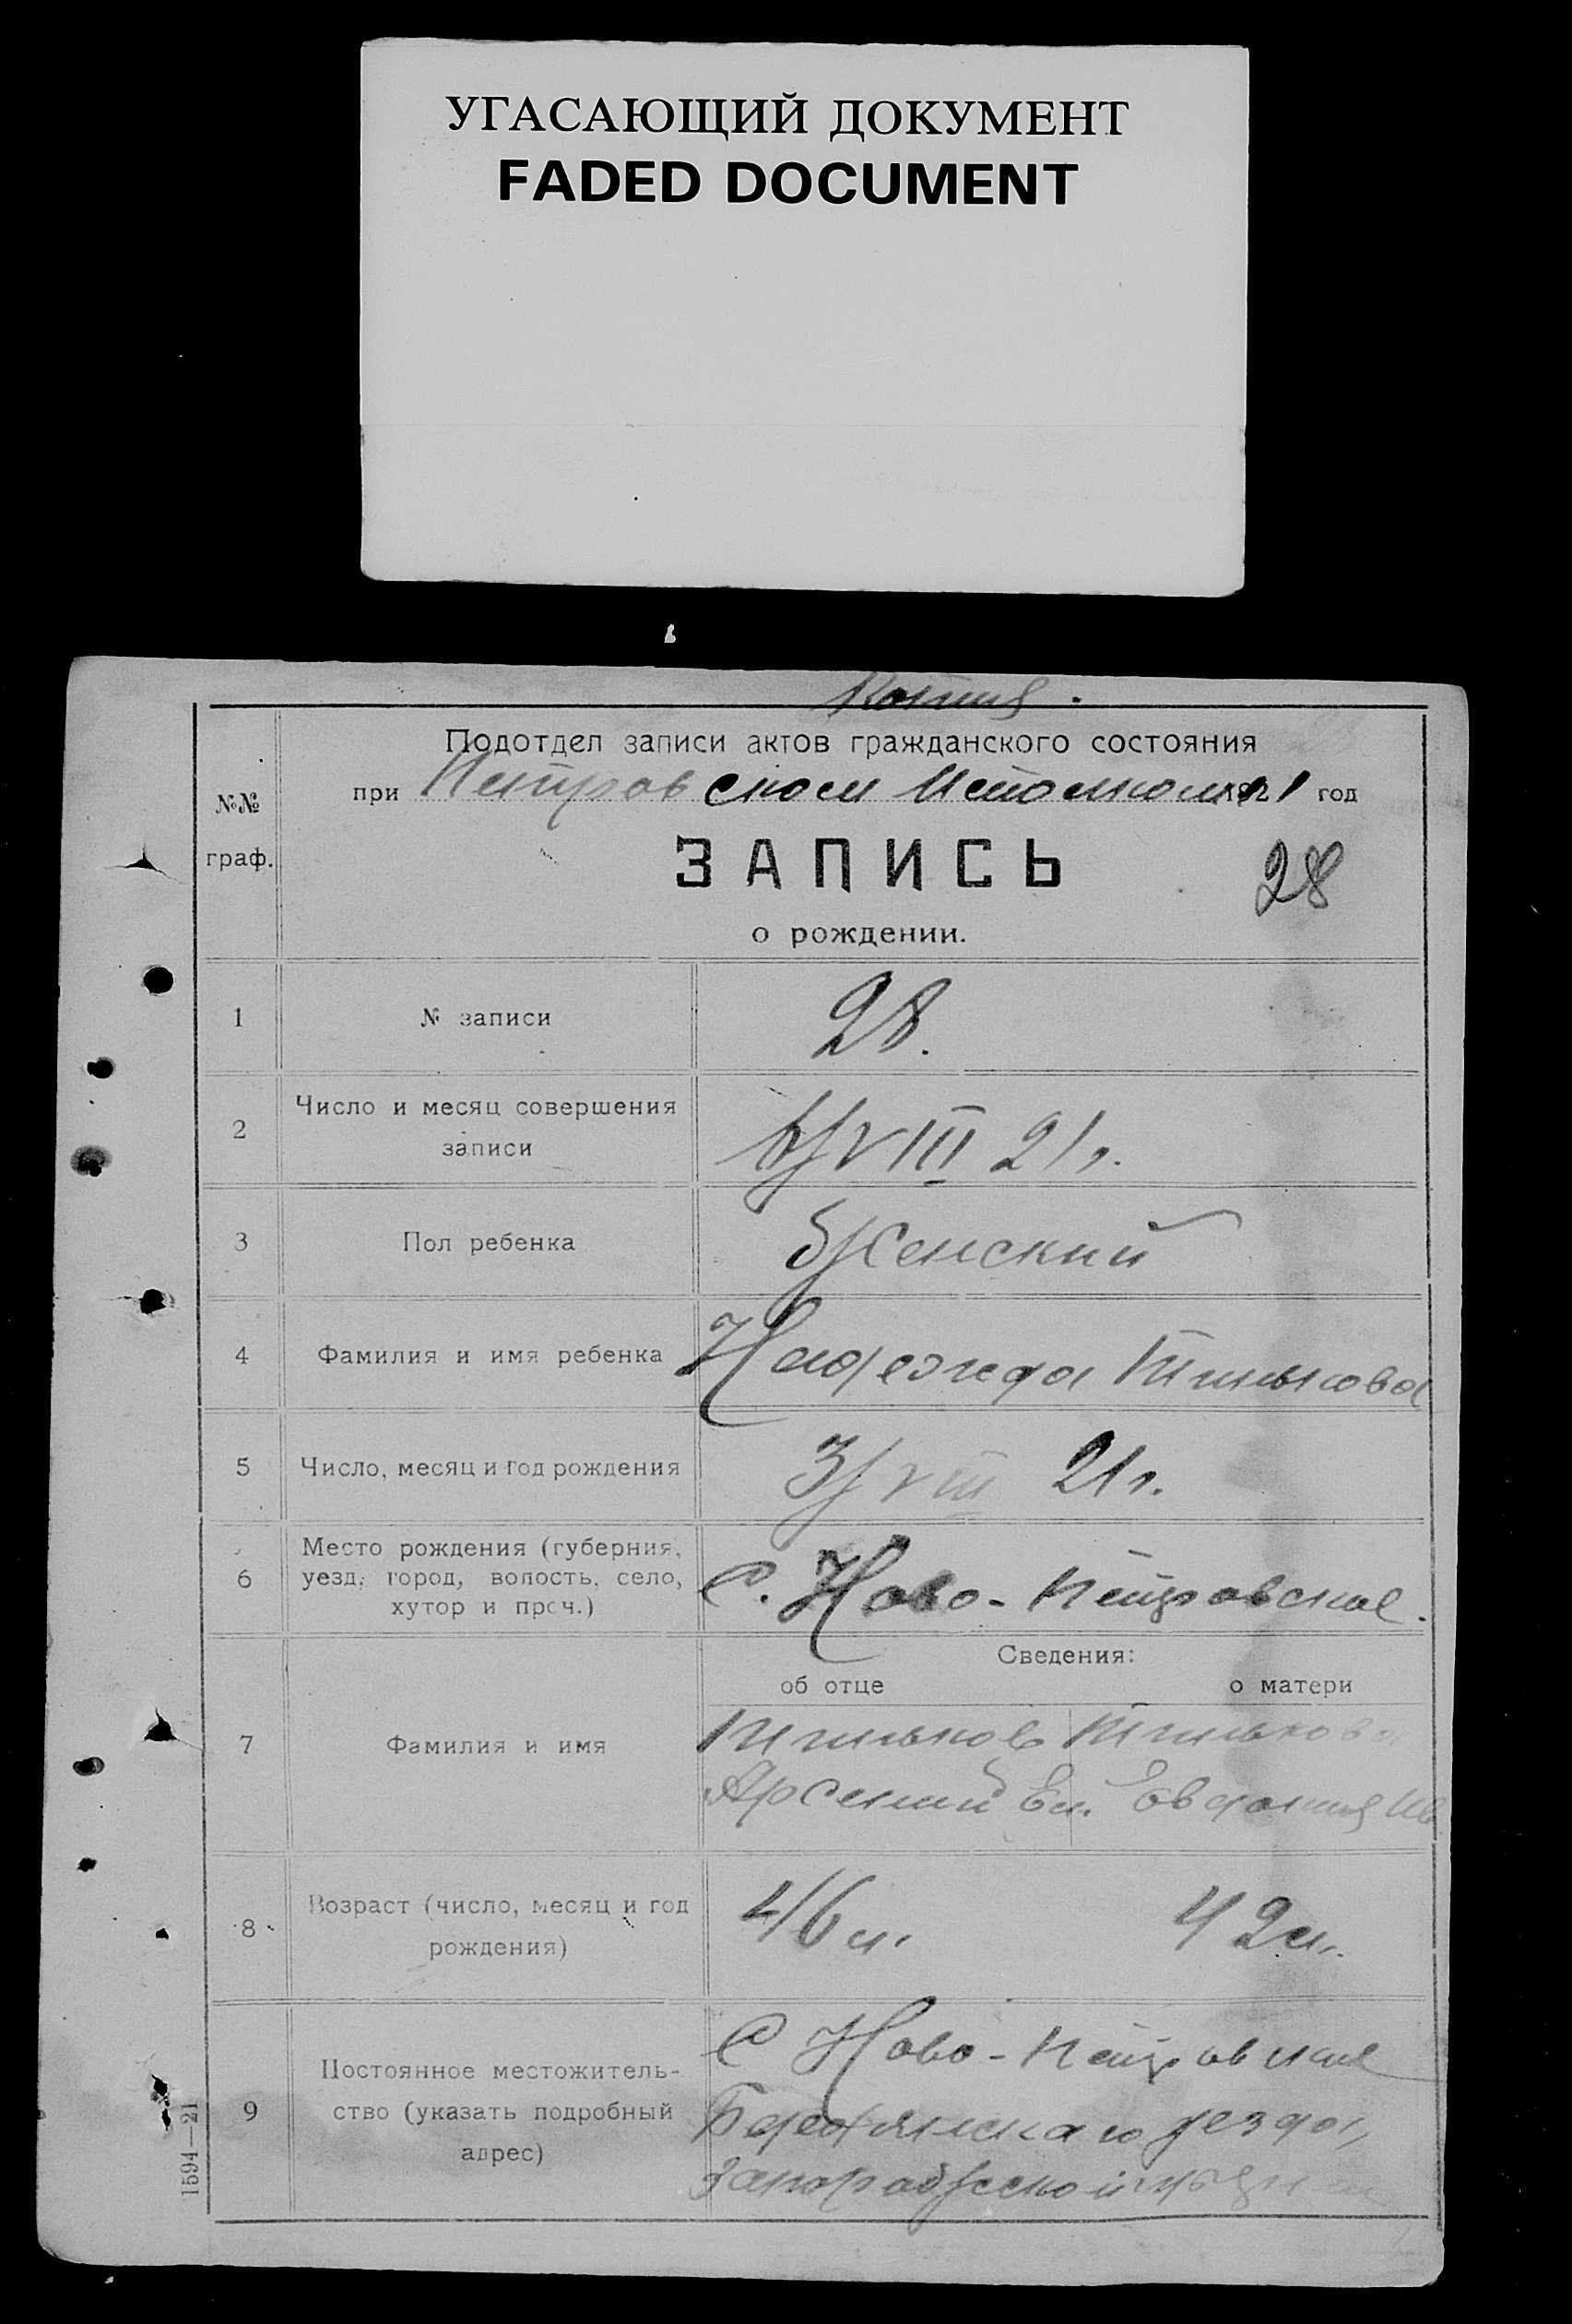 УГАСАЮЩИЙ ДОКУМЕНТ
FADED DOCUMENT
Копия.
Подотдел записи актов гражданского состояния
при Петровском Исполкоме 1921 год
№№ граф.
ЗАПИСЬ
28
о рождении.
1 № записи 28.
2 Число и месяц совершения записи VIII 21 г.
3 Пол ребенка Женский
4 Фамилия и имя ребенка Надежда
5 Число, месяц и год рождения 3/VIII 21 г.
6 Место рождения (губерния, уезд, город, волость, село, хутор и проч.) С. Ново-Петровское.
Сведения:
об отце о матери
7 Фамилия и имя
Арсений Ем. Евдокия Ив.
8 Возраст (число, месяц и год рождения) 46 л. 42 л.
9 Постоянное местожительство (указать подробный адрес) С Ново-Петровское
Бердянскаго уезда,
Запорожской
1594—21